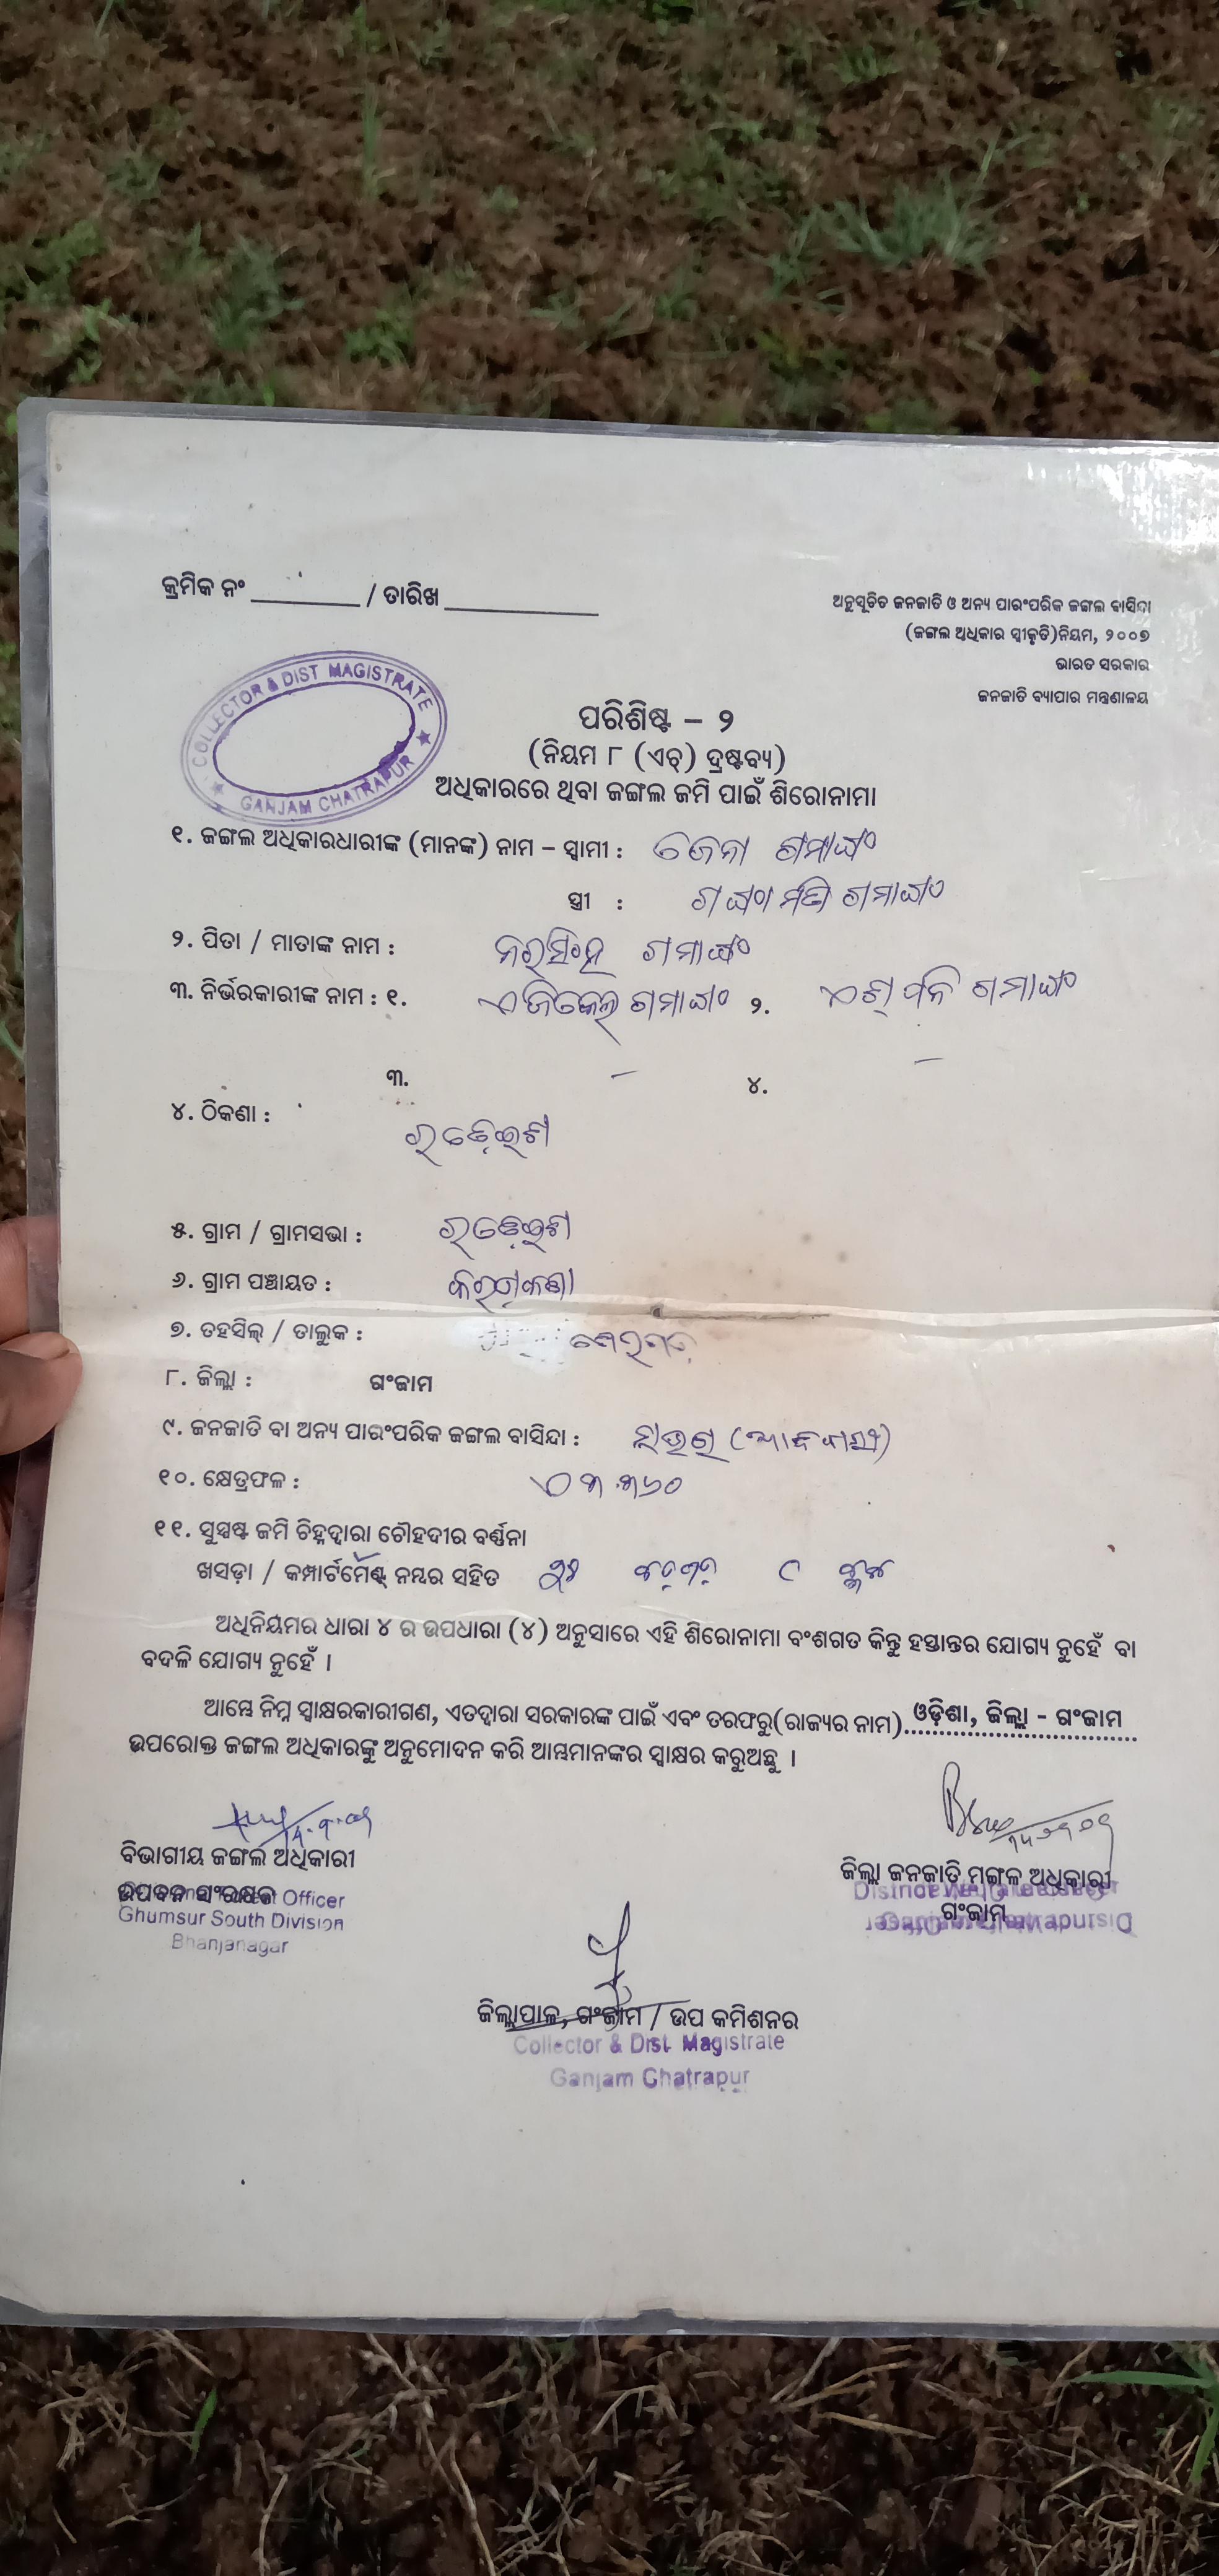 କ୍ରମିକ ନଂ ________ / ତାରିଖ ____________
ଅନୁସୂଚିତ ଜନଜାତି ଓ ଅନ୍ୟ ପାରଂପରିକ ଜଙ୍ଗଲ ବାସିନ୍ଦା
(ଜଙ୍ଗଲ ଅଧିକାର ସ୍ୱୀକୃତି)ନିୟମ, ୨୦୦୭
ଭାରତ ସରକାର
ଜନଜାତି ବ୍ୟାପାର ମନ୍ତ୍ରଣାଳୟ
COLLECTOR & DIST MAGISTRATE
GANJAM CHATRAPUR
ପରିଶିଷ୍ଟ – ୨
(ନିୟମ ୮ (ଏଚ୍) ଦ୍ରଷ୍ଟବ୍ୟ)
ଅଧିକାରରେ ଥିବା ଜଙ୍ଗଲ ଜମି ପାଇଁ ଶିରୋନାମା
୧. ଜଙ୍ଗଲ ଅଧିକାରଧାରୀଙ୍କ (ମାନଙ୍କ) ନାମ – ସ୍ୱାମୀ : ଜେନା ଗମାଙ୍ଗ
ସ୍ତ୍ରୀ : ଗମାଙ୍ଗ
୨. ପିତା / ମାତାଙ୍କ ନାମ : ନରସିଂହ ଗମାଙ୍ଗ
୩. ନିର୍ଭରକାରୀଙ୍କ ନାମ : ୧. ଏଜିକେଲ ଗମାଙ୍ଗ ୨. ଗମାଙ୍ଗ
୩. – ୪. –
୪. ଠିକଣା :
୫. ଗ୍ରାମ / ଗ୍ରାମସଭା :
୬. ଗ୍ରାମ ପଞ୍ଚାୟତ :
୭. ତହସିଲ୍ / ତାଲୁକ :
୮. ଜିଲ୍ଲା : ଗଂଜାମ
୯. ଜନଜାତି ବା ଅନ୍ୟ ପାରଂପରିକ ଜଙ୍ଗଲ ବାସିନ୍ଦା :
୧୦. କ୍ଷେତ୍ରଫଳ : ଏ ୩.୩୬୦
୧୧. ସୁସ୍ପଷ୍ଟ ଜମି ଚିହ୍ନଦ୍ୱାରା ଚୌହଦୀର ବର୍ଣ୍ଣନା
ଖସଡ଼ା / କମ୍ପାର୍ଟମେଣ୍ଟ୍ ନମ୍ବର ସହିତ
ଅଧିନିୟମର ଧାରା ୪ ର ଉପଧାରା (୪) ଅନୁସାରେ ଏହି ଶିରୋନାମା ବଂଶଗତ କିନ୍ତୁ ହସ୍ତାନ୍ତର ଯୋଗ୍ୟ ନୁହେଁ ବା
ବଦଳି ଯୋଗ୍ୟ ନୁହେଁ ।
ଆମ୍ଭେ ନିମ୍ନ ସ୍ୱାକ୍ଷରକାରୀଗଣ, ଏତଦ୍ୱାରା ସରକାରଙ୍କ ପାଇଁ ଏବଂ ତରଫରୁ(ରାଜ୍ୟର ନାମ) ଓଡ଼ିଶା, ଜିଲ୍ଲା - ଗଂଜାମ
ଉପରୋକ୍ତ ଜଙ୍ଗଲ ଅଧିକାରଙ୍କୁ ଅନୁମୋଦନ କରି ଆମ୍ଭମାନଙ୍କର ସ୍ୱାକ୍ଷର କରୁଅଛୁ ।
ବିଭାଗୀୟ ଜଙ୍ଗଲ ଅଧିକାରୀ
ଉପବନ ସଂରକ୍ଷକ
Officer
Ghumsur South Division
Bhanjanagar
ଜିଲ୍ଲା ଜନଜାତି ମଙ୍ଗଳ ଅଧିକାରୀ
ଗଂଜାମ
ଜିଲ୍ଲାପାଳ, ଗଂଜାମ / ଉପ କମିଶନର
Collector & Dist. Magistrate
Ganjam Chatrapur